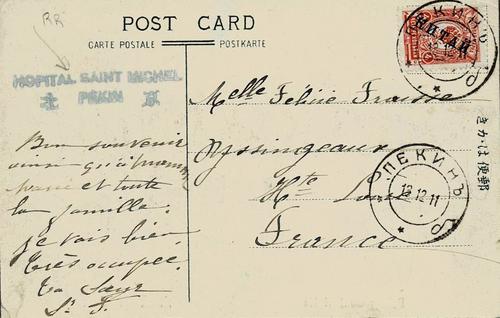 RR
POST CARD
CARTE POSTALE
POSTKARTE
HOPITAL SAINT MICHEL
PEKIN
北 京
Melle Felicie Fraisse
Yssingeaux
Hte Loire
France
Bon souvenir
ainsi qu'à
et toute
la famille.
je vais bien
très occupée.
Ta Sœur
St F.
КИТАЙ
ПЕКИНЪ
ПЕКИНЪ
12 12 11
きかは便郵